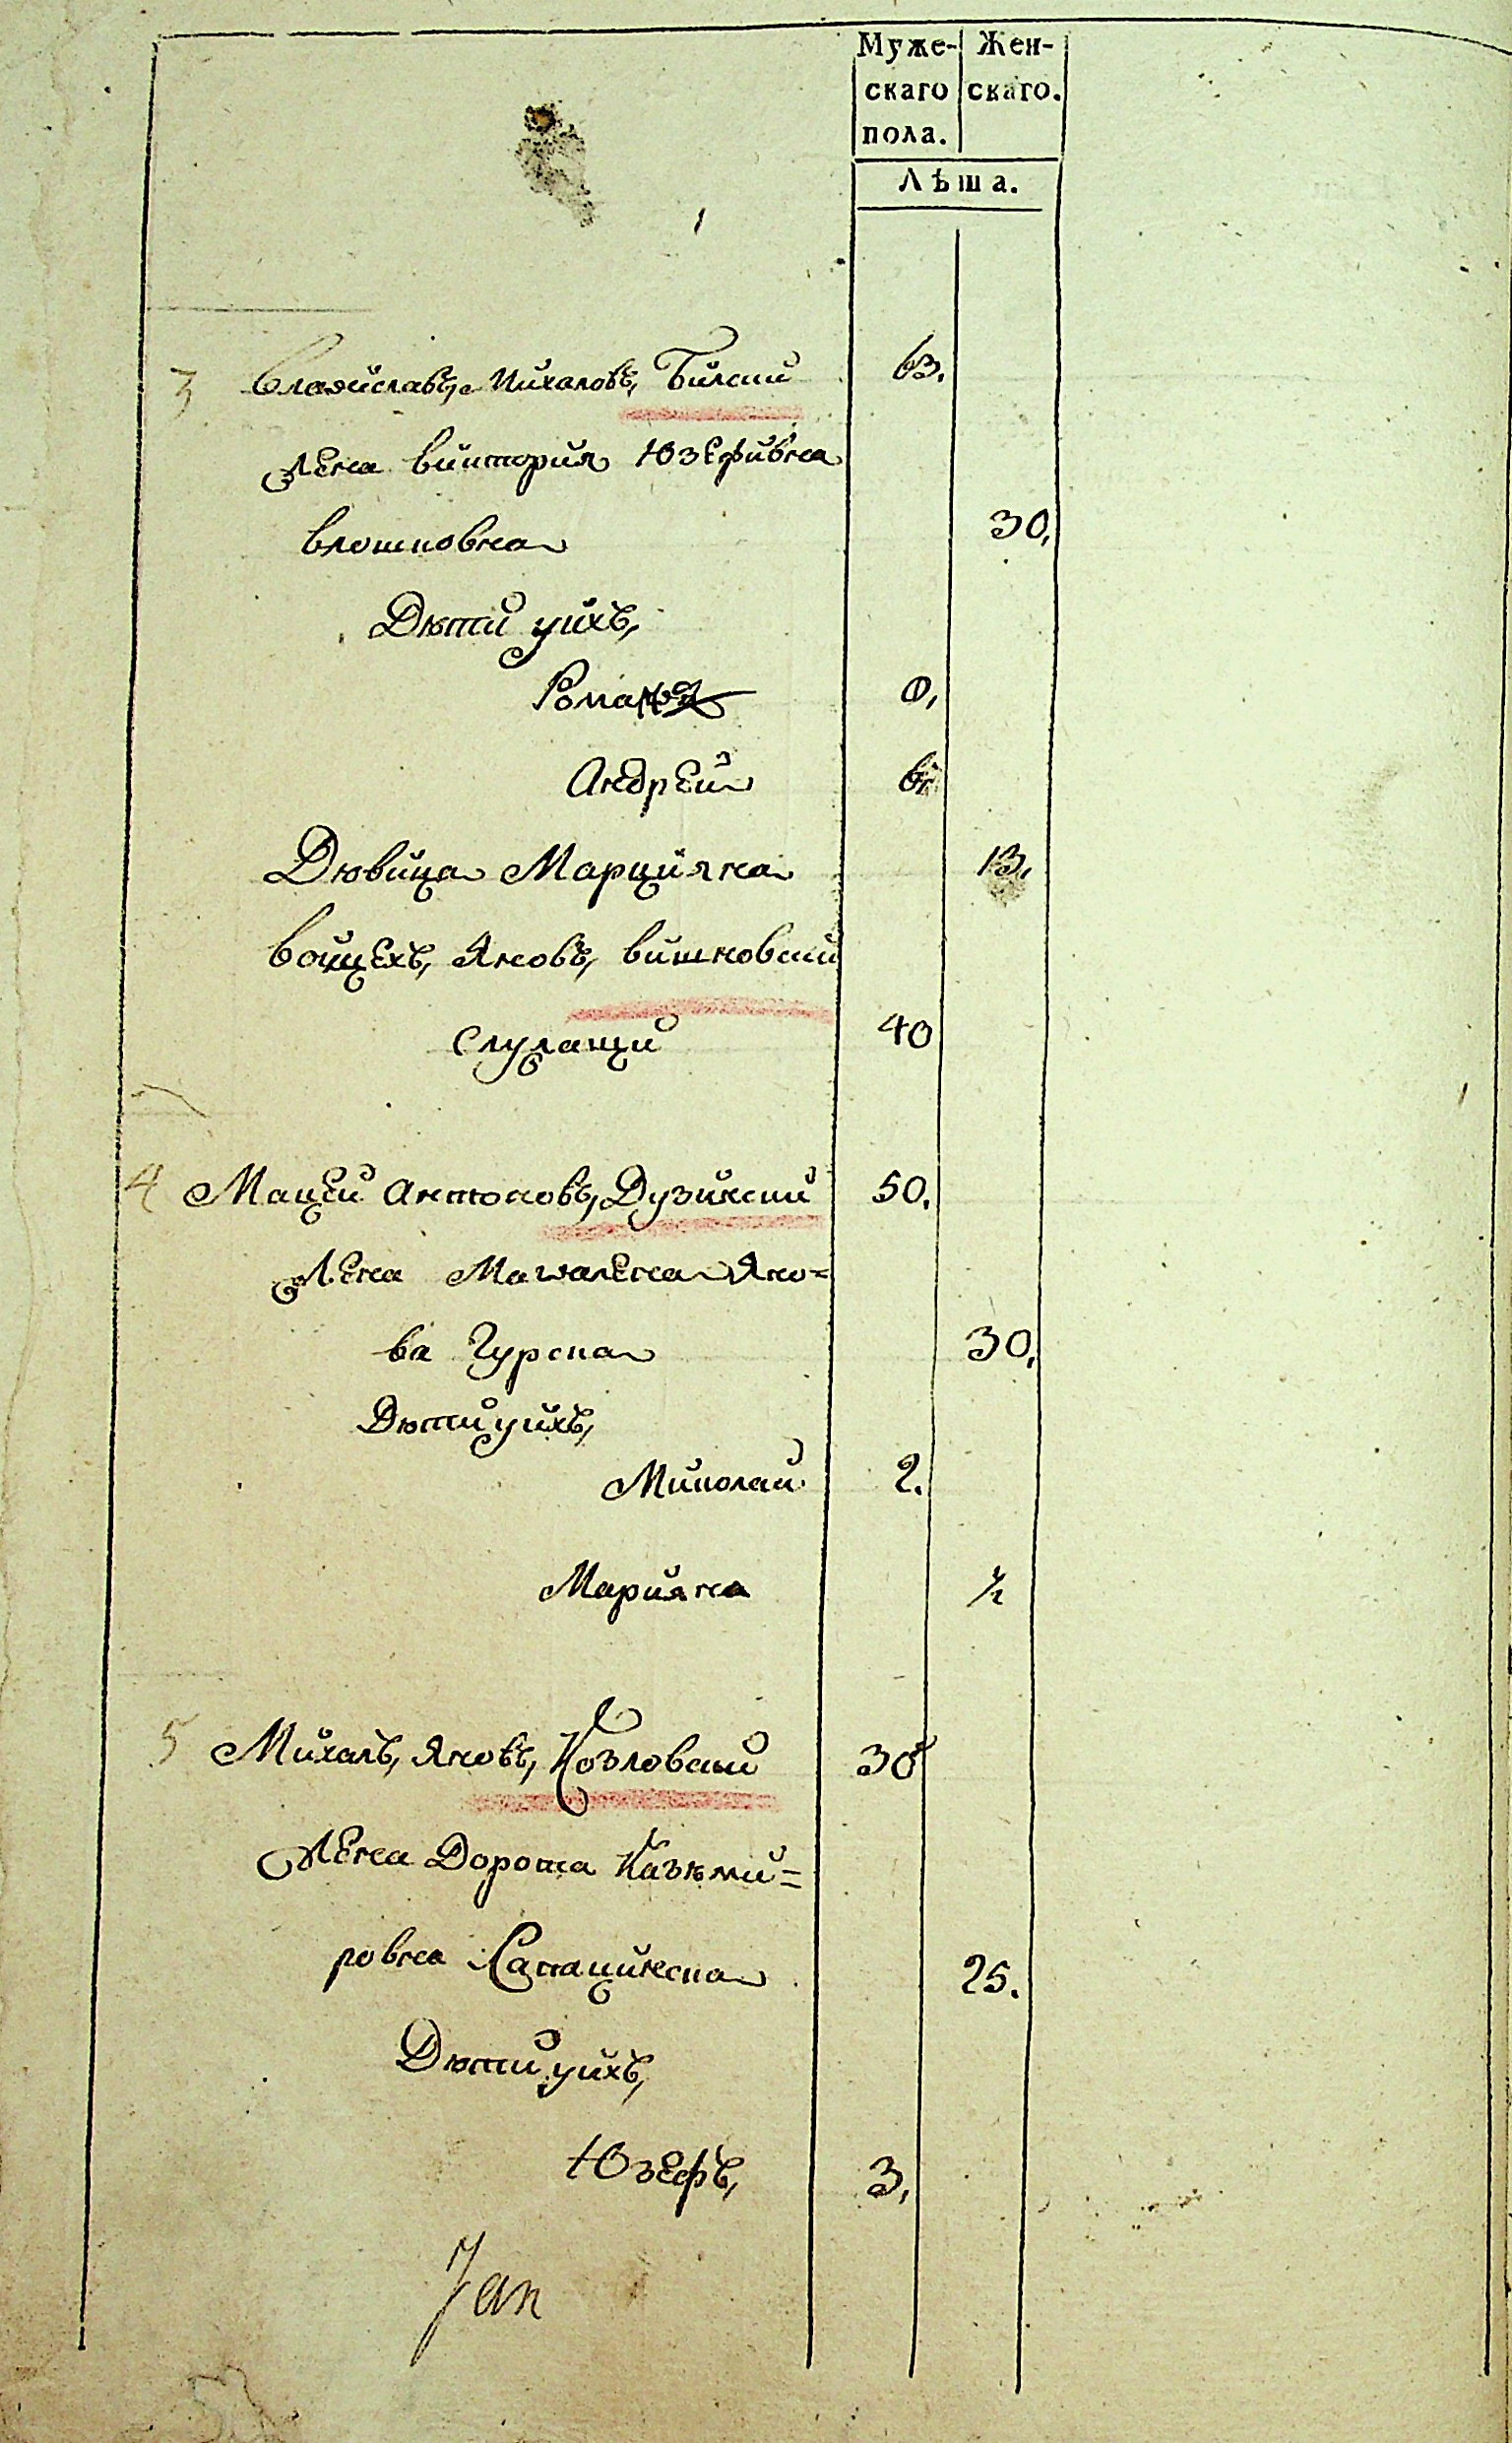 Муже- Жен-
скаго скаго.
пола.
Лѣта.
3 Владиславъ Михаловъ Билский 63.
Жена Виктория Юзефивна
Влошковна 30,
Дѣти у ихъ,
Роман 0,
Андрей 6
Дѣвица Марцияна 13,
Войцехъ, Яновъ, Вишновский
Служащи 40
4 Мацей Антоновъ, Дузинский 50.
Жена Магдалена Яно=
ва Гурска 30,
Дѣти у ихъ,
Миколай 2.
Марияна ½
5 Михалъ, Яновъ, Козловский 30
Жена Дорота Казѣми=
ровна 25.
Дѣти у ихъ,
Юзефъ, 3,
Jan